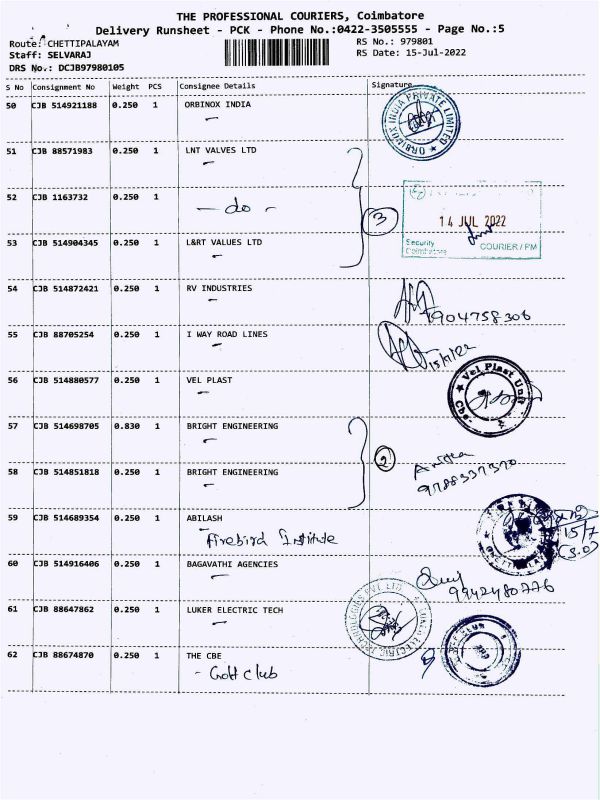 THE PROFESSIONAL COURIERS, Coimbatore
Delivery Runsheet - PCK - Phone No.:0422-3505555 - Page No.:5
Route: CHETTIPALAYAM RS No.: 979801
Staff: SELVARAJ RS Date: 15-Jul-2022
DRS No.: DCJB97980105
S No Consignment No Weight PCS Consignee Details Signature
50 CJB 514921188 0.250 1 ORBINOX INDIA
ORBINOX INDIA PRIVATE LIMITED
51 CJB 88571983 0.250 1 LNT VALVES LTD
52 CJB 1163732 0.250 1 - do -
3
14 JUL 2022
53 CJB 514904345 0.250 1 L&RT VALUES LTD
Security COURIER / PM
Coimbatore
54 CJB 514872421 0.250 1 RV INDUSTRIES
9904758306
55 CJB 88705254 0.250 1 I WAY ROAD LINES
15/7/22
56 CJB 514880577 0.250 1 VEL PLAST
Vel Plast Unit Cbe
57 CJB 514698705 0.830 1 BRIGHT ENGINEERING
2
58 CJB 514851818 0.250 1 BRIGHT ENGINEERING
9788337370
59 CJB 514689354 0.250 1 ABILASH
Firebird Institute
15/7
60 CJB 514916406 0.250 1 BAGAVATHI AGENCIES
9942480776
61 CJB 88647862 0.250 1 LUKER ELECTRIC TECH
LUKER ELECTRIC TECHNOLOGIES PVT LTD
62 CJB 88674870 0.250 1 THE CBE
- Golf club